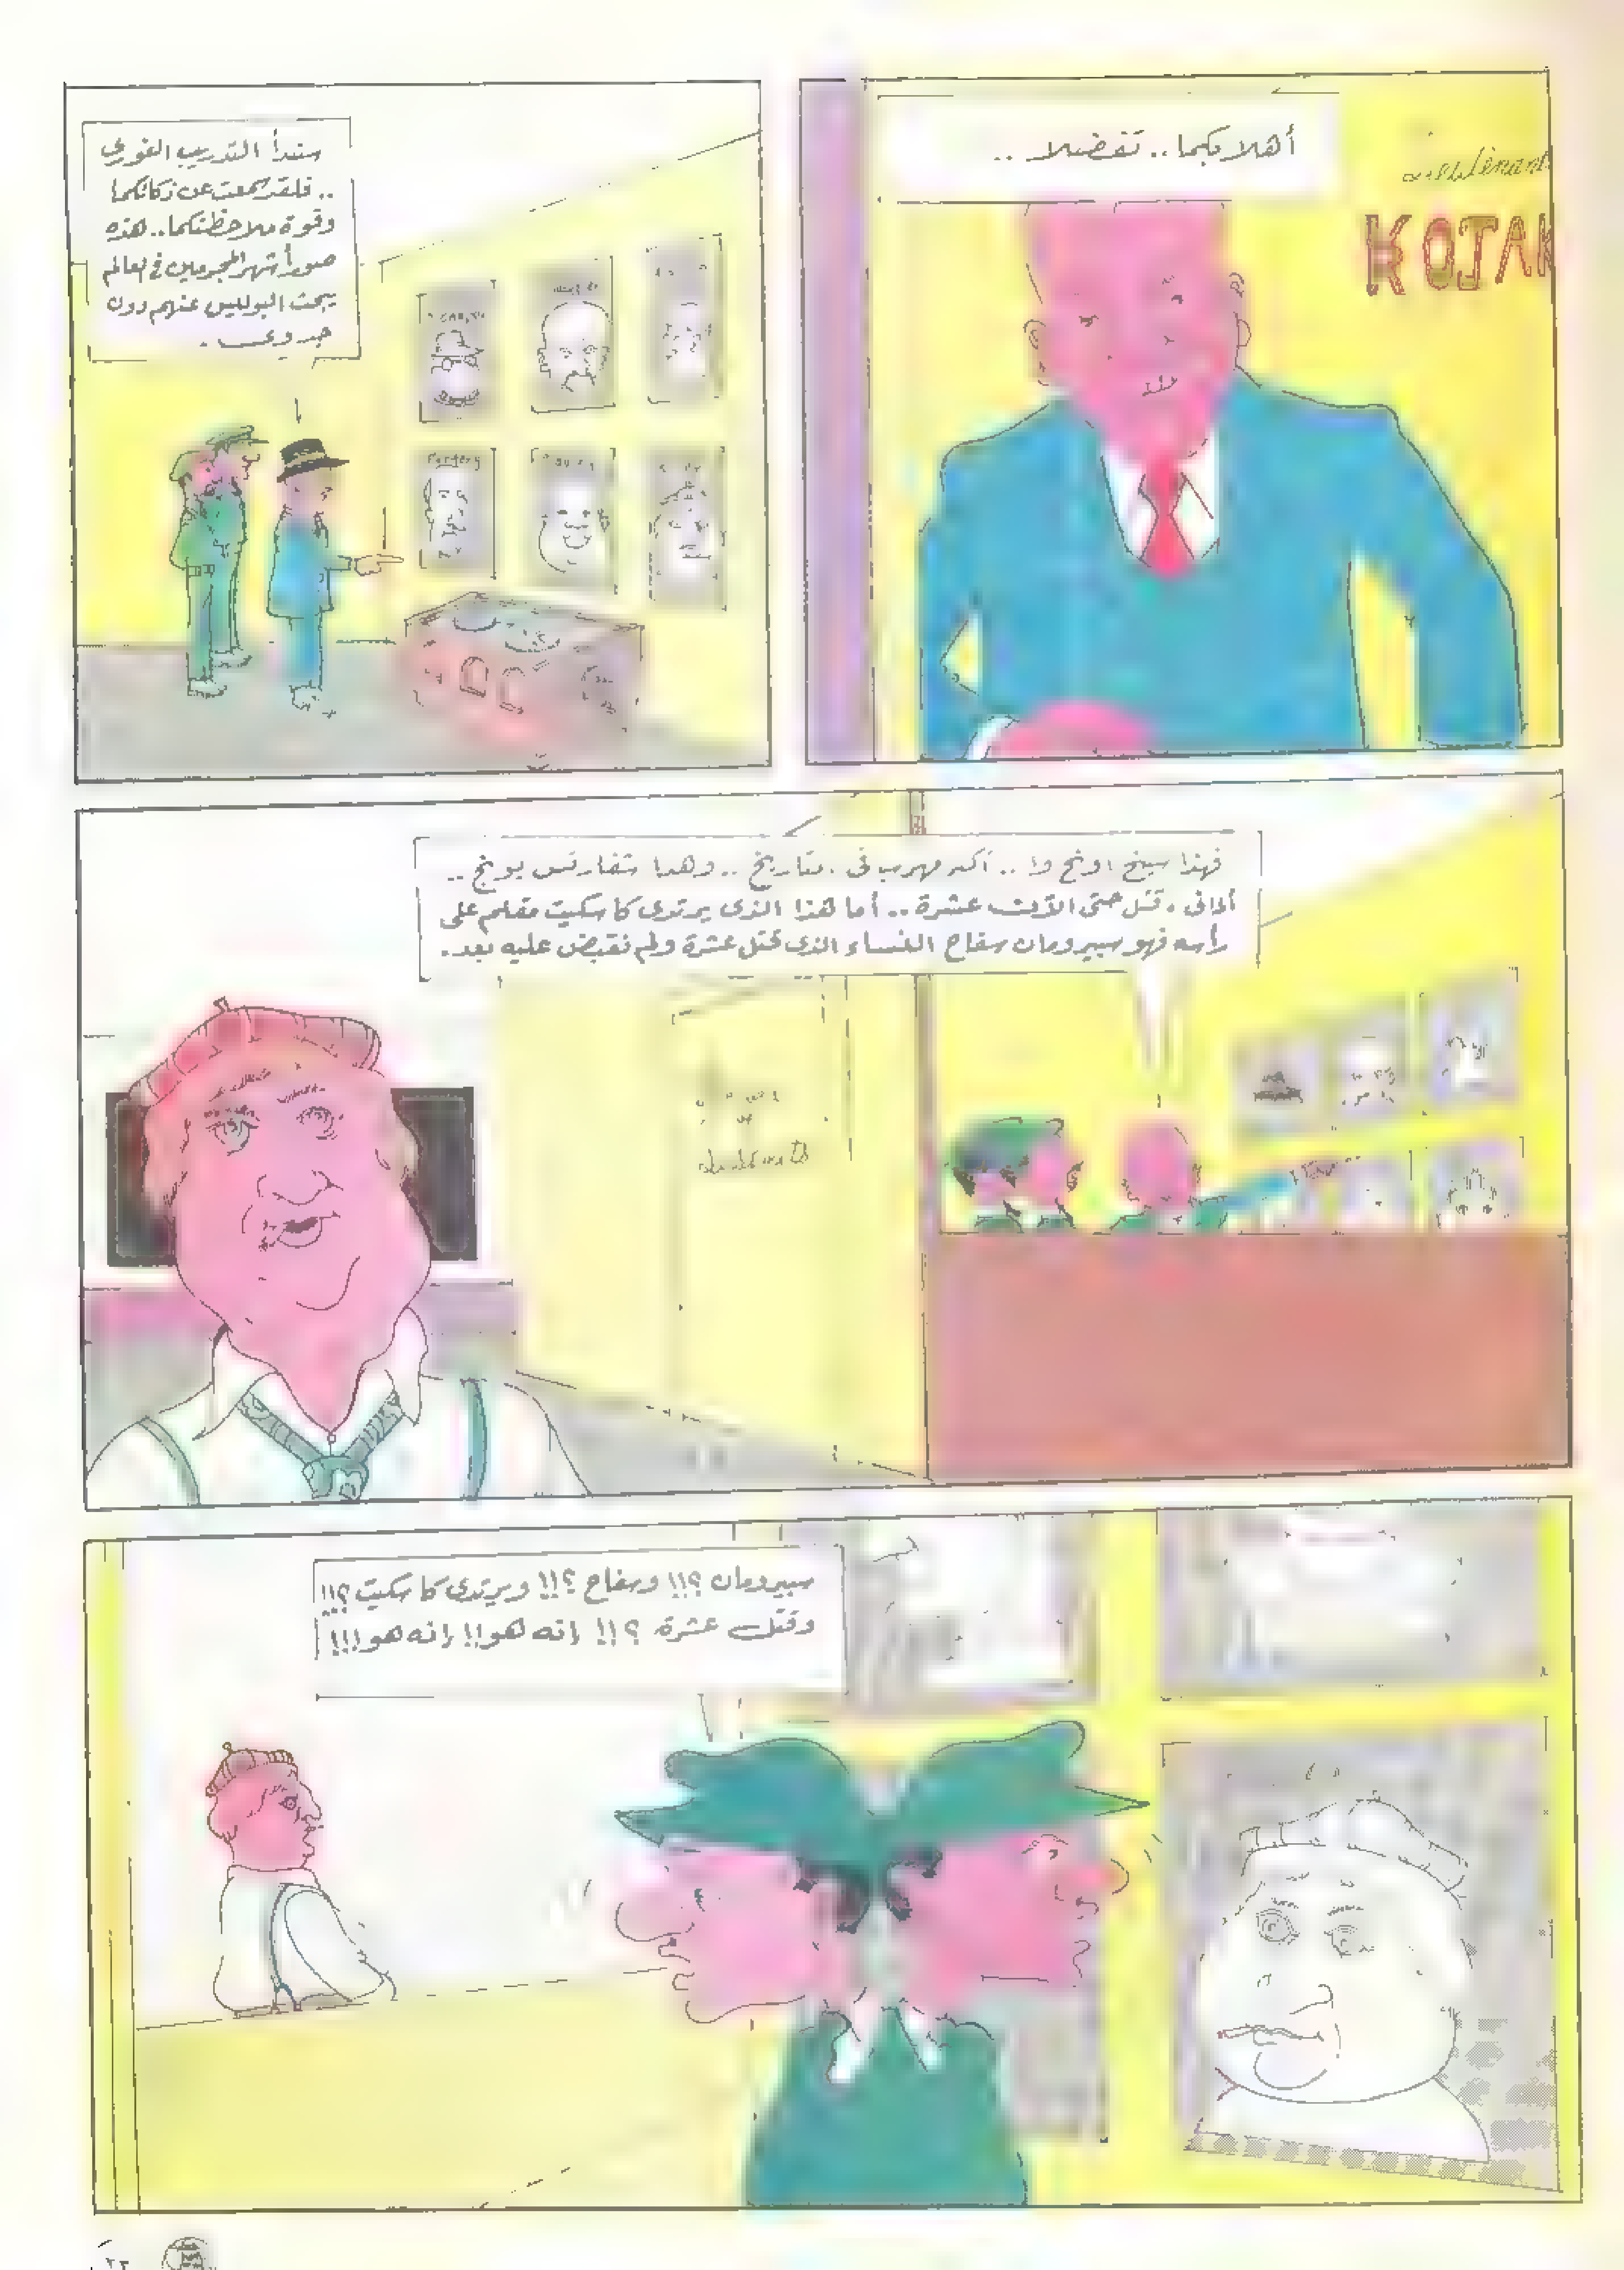 أهلا بكما.. تفضلا ..
KOJAK
سنبدأ التدريب الفورى
.. فلقد سمعت عن ذكائكما
وقوة ملاحظتكما.. هذه
صور أشهر المجرمين فى العالم
يبحث البوليس عنهم دون
جدوى .
فهذا سينج اونج وا .. أكبر مهرب فى .. وهذا شفارتس يونج ..
ألمانى . قتل حتى الآن عشرة .. أما هذا الذى يرتدى كاسكيت مقلم على
رأسه فهو سبيرومان سفاح النساء الذى قتل عشرة ولم نقبض عليه بعد .
سبيرومان ؟!! وسفاح ؟!! ويرتدى كاسكيت ؟!!
وقتل عشرة ؟!! إنه هو!! إنه هو!!!